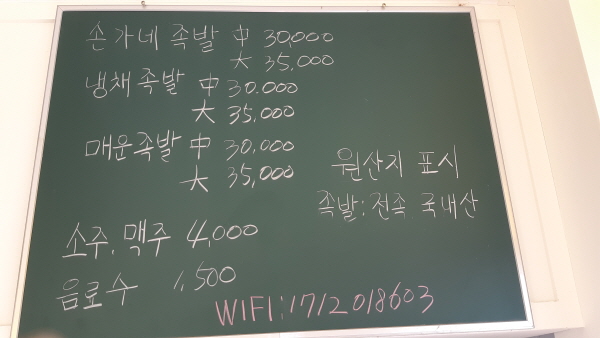 손가네 족발 中 30,000
大 35,000
냉채족발 中 30.000
大 35,000
매운족발 中 30,000
大 35,000
원산지 표시
족발: 전족 국내산
소주, 맥주 4,000
음료수 1,500
WIFI:1712018603